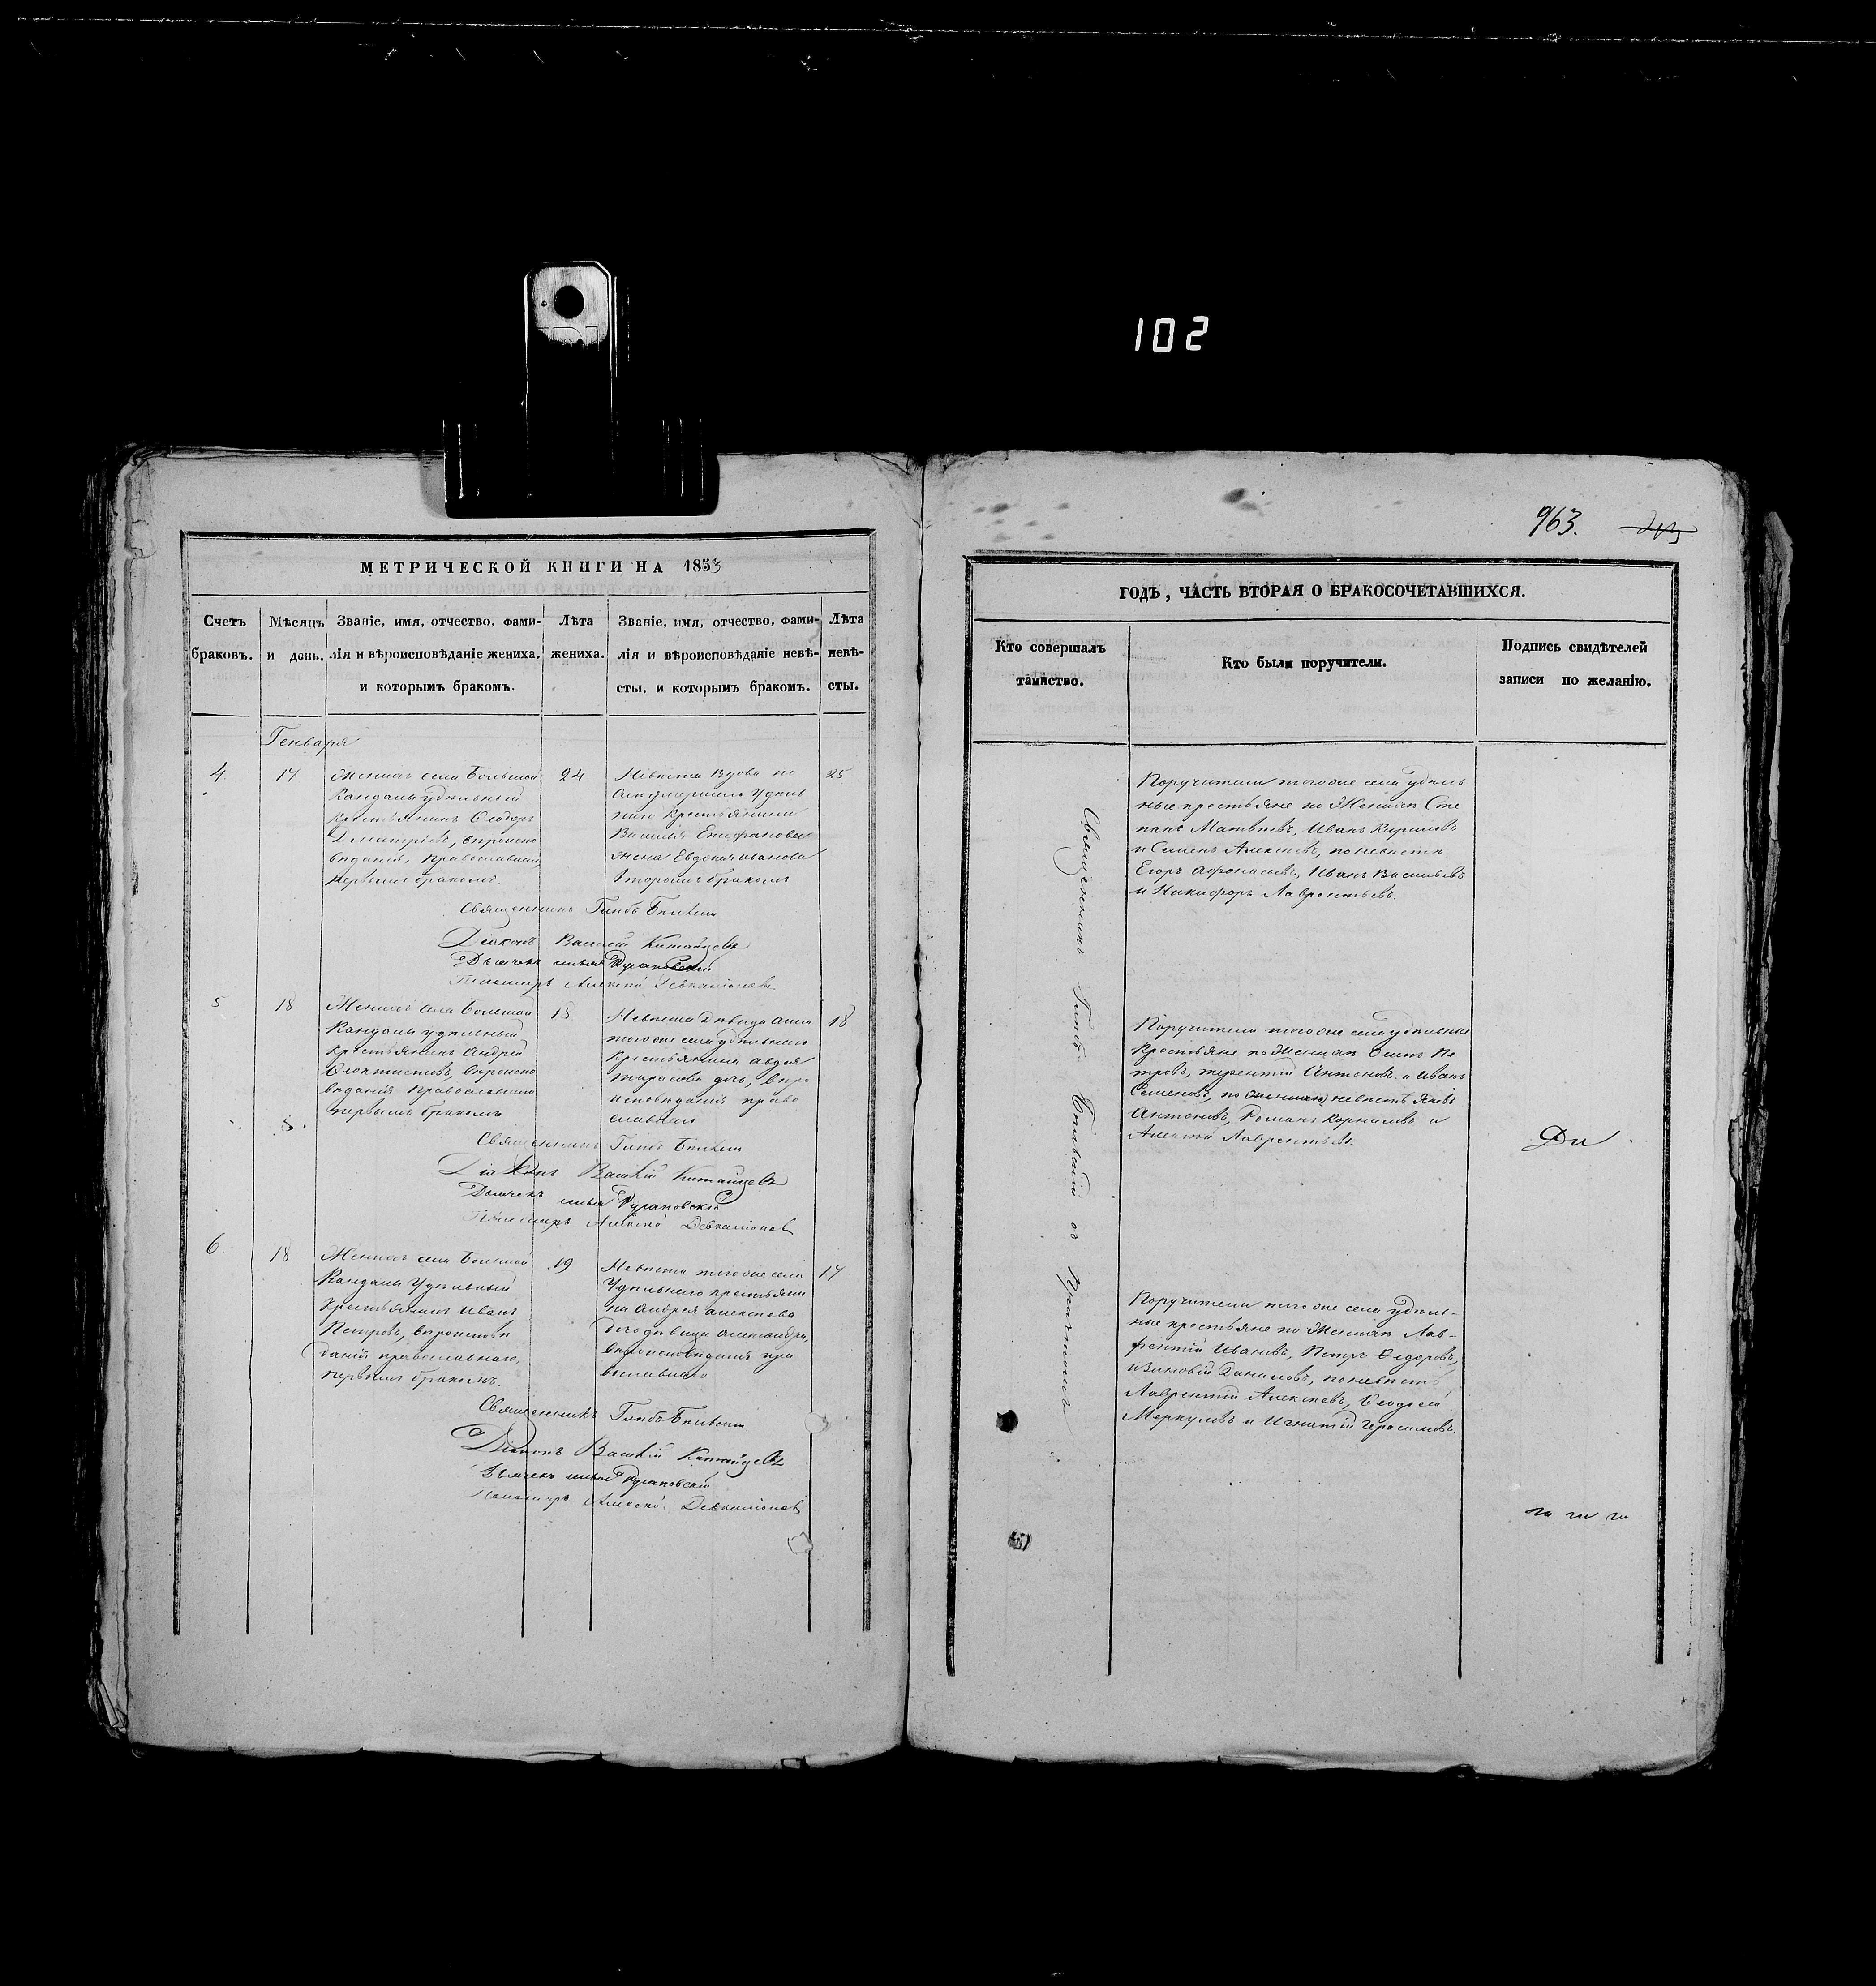 102
963.
МЕТРИЧЕСКОЙ КНИГИ НА 1853
Счетъ браковъ.
Мѣсяцъ и день.
Званіе, имя, отчество, фами-
лія и вѣроисповѣданіе жениха,
и которымъ бракомъ.
Лѣта жениха.
Званіе, имя, отчество, фами-
лія и вѣроисповѣданіе невѣ-
сты, и которымъ бракомъ.
Лѣта невѣ-
сты.
Генваря
4.
17
Женихъ села Большой
Кандалы удѣльный
крестьянинъ Ѳеодоръ
Димитріевъ, вѣроиспо
вѣданія, православнаго
первымъ бракомъ.
24
Невѣста вдова по
умершемъ Удѣль
наго Крестьянина
Василья Епифанова
жена Евдокія Иванова
вторымъ бракомъ
25
Священникъ Глѣбъ
Діаконъ Василій Китайцевъ
Дьячекъ
Пономарь Алексѣй Девкаліоновъ
5
18
Женихъ села Большой
Кандалы удѣльный
Крестьянинъ Андрей
Ѳеоктистовъ, вѣроиспо
вѣданія православнаго
первымъ бракомъ
18
Невѣста Дѣвица Анна
того же села удѣльнаго
Крестьянина Авдея
Тарасова дочь, вѣро
исповѣданія право
славнаго
18
5.
Священникъ Глѣбъ
Діаконъ Василій Китайцевъ
Дьячекъ
Пономарь Алексѣй Девкаліоновъ
6
18
Женихъ села Большой
Кандалы Удѣльный
Крестьянинъ Иванъ
Петровъ, вѣроисповѣ
данія православнаго,
первымъ бракомъ.
19
Невѣста того же села
Удѣльнаго крестьяни
на Андрея Алексѣева
дочь дѣвица Александра,
вѣроисповѣданія пра
вославнаго
17
Священникъ Глѣбъ
Діаконъ Василій Китайцевъ
Дьячекъ
Пономарь Алексѣй Девкаліоновъ
ГОДЪ, ЧАСТЬ ВТОРАЯ О БРАКОСОЧЕТАВШИХСЯ.
Кто совершалъ
таинство.
Кто были поручители.
Подпись свидѣтелей
записи по желанію.
Священникъ Глѣбъ съ Причтомъ
Поручители того же села удѣль
ные крестьяне по Женихѣ Сте
панъ Матвѣевъ, Иванъ Кириловъ
и Семенъ Алексѣевъ, по невѣстѣ
Егоръ Афонасьевъ, Иванъ Васильевъ
и Никифоръ Лаврентьевъ.
Поручители того же села удѣльные
Крестьяне по Женихѣ Пе
тровъ, терентій Антоновъ и Иванъ
Семеновъ, по невѣстѣ Яковъ
Антоновъ, Романъ Корниловъ и
Алексѣй Лаврентьевъ.
Поручители того же села удѣль-
ные крестьяне по Женихѣ Лав-
рентій Ивановъ, Петръ Ѳедоровъ,
и Зиновій Даниловъ, по невѣстѣ
Лаврентій Алексѣевъ,
Меркуловъ и Игнатій Герасимовъ.